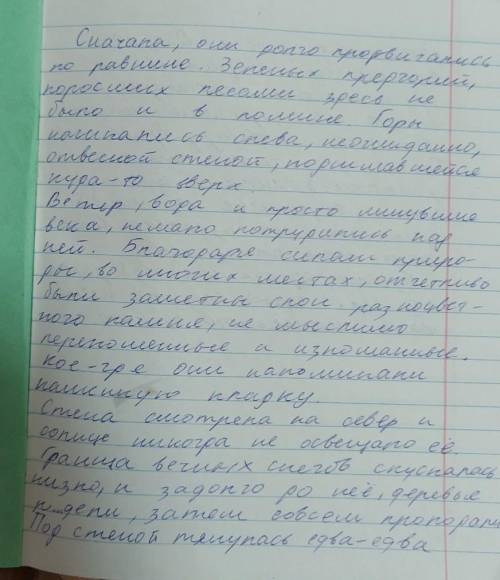 Сначала, они долго продвигались
по равнине. Зеленых предгорий,
поросших лесами здесь не
было и в помине. Горы
начинались слева, неожиданно,
отвесной стеной, поднимавшейся
куда-то вверх.
Ветер, вода и просто минувшие
века, немало потрудились над
ней. Благодаря силам приро-
ды, во многих местах, отчетливо
были заметны слои разноцвет-
ного камня, не мыслимо
переломленные и изломанные.
Кое-где они напоминали
каменную кладку.
Стена смотрела на север и
солнце никогда не освещало её.
Граница вечных снегов спускалась
низко, и задолго до неё, деревья
затем совсем пропадали
Под стеной тянулась едва-едва